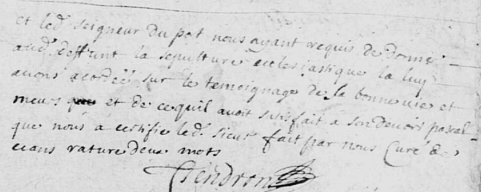 et led. seigneur du pot nous ayant requis de donner
aud. deffunt la sepulture ecclesiastique la luy
avons acordée sur le temoignage de la bonne vie et
meurs et de ce quil avoit satisfait a son devoir pascal
que nous a certifie led. sieur fait par nous Curé &
ci ans rature deux mots
Gendron